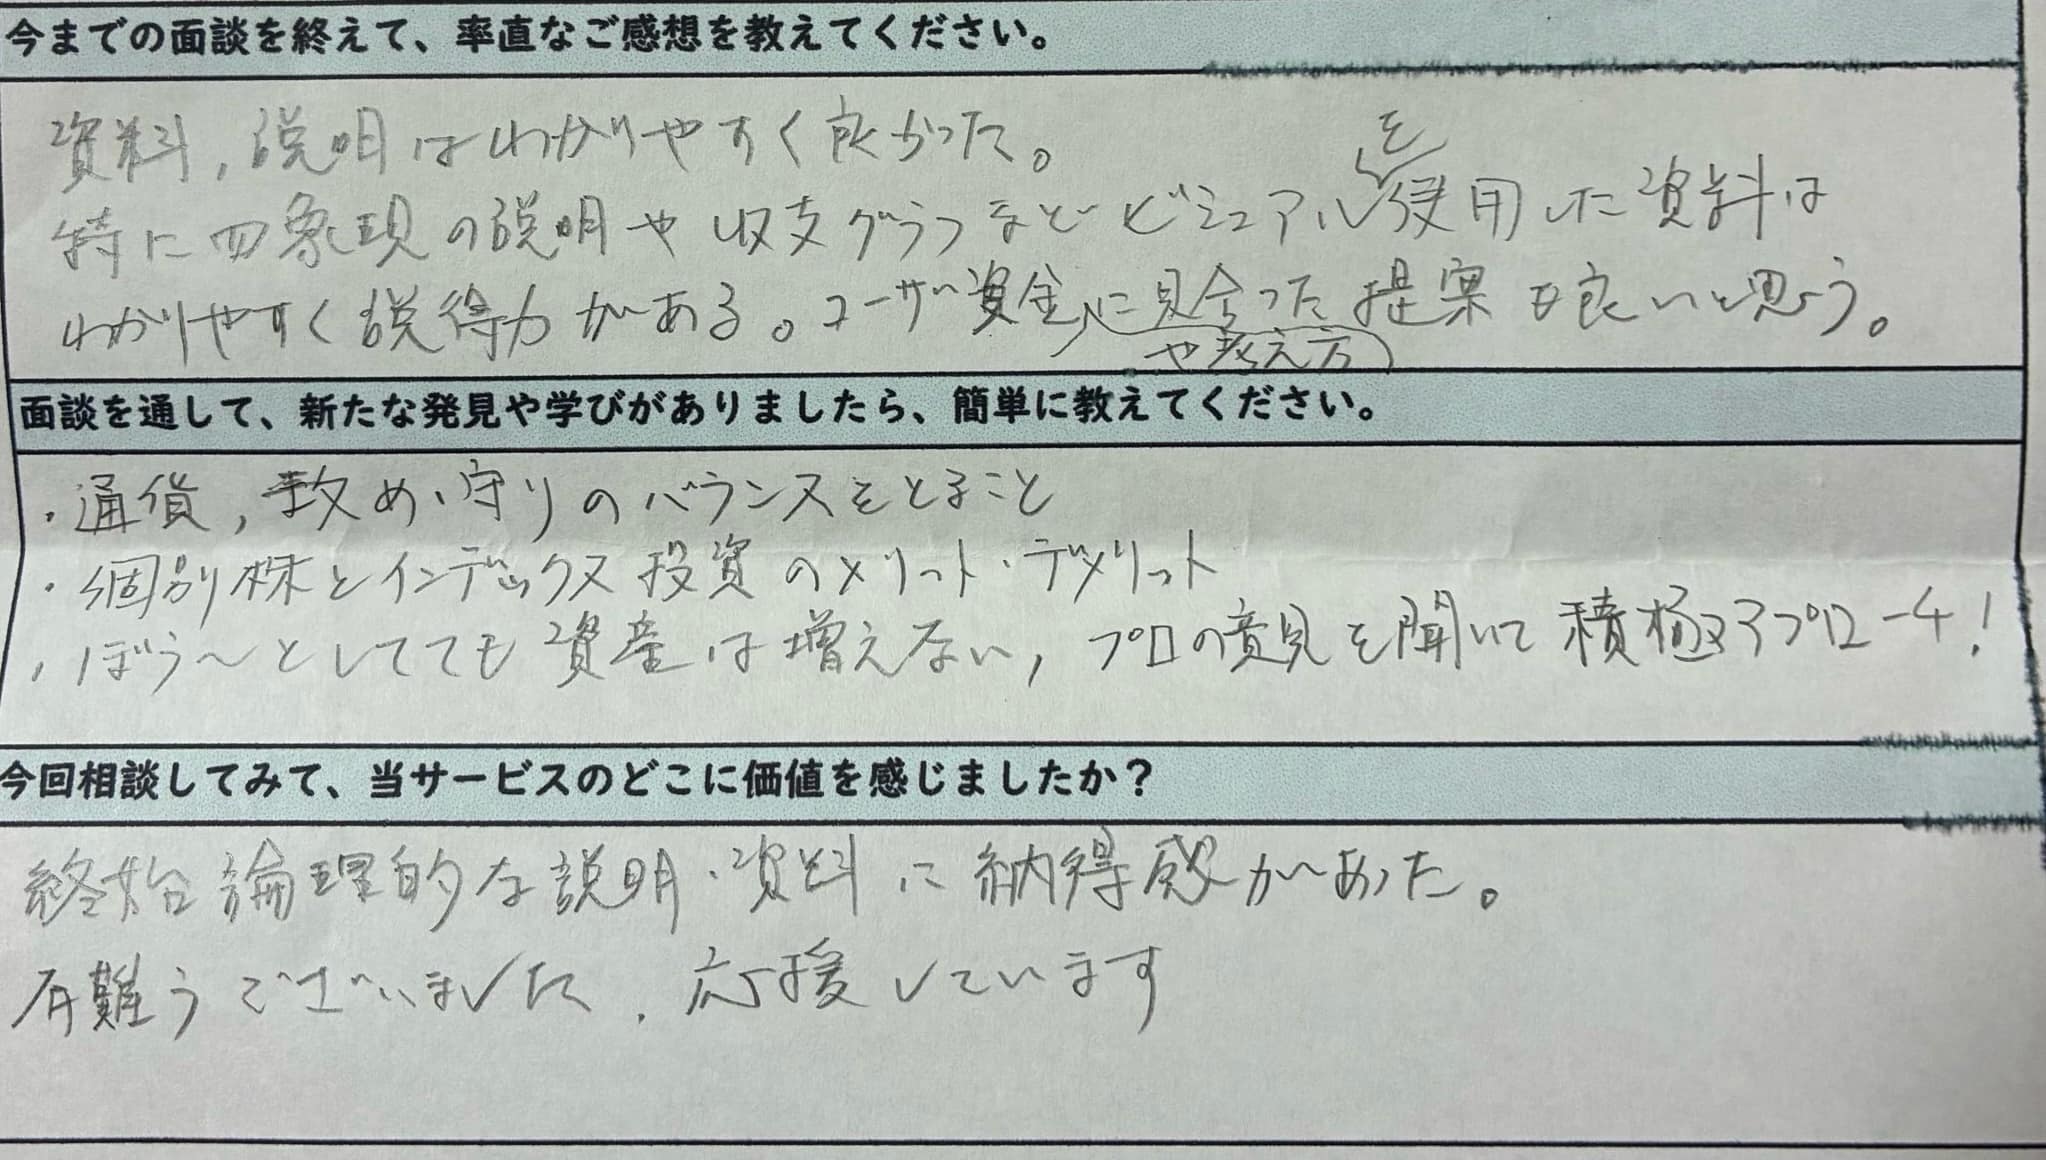 今までの面談を終えて、率直なご感想を教えてください。
資料,説明はわかりやすく良かった。
特に四象現の説明や収支グラフなどビジュアルを使用した資料は
わかりやすく説得力がある。ユーザ資金や考え方に見合った提案も良いと思う。
面談を通して、新たな発見や学びがありましたら、簡単に教えてください。
・通貨,攻め・守りのバランスをとること
・個別株とインデックス投資のメリット・デメリット
・ぼう〜としてても資産は増えない,プロの意見を聞いて積極アプローチ!
今回相談してみて、当サービスのどこに価値を感じましたか?
終始論理的な説明・資料に納得感があった。
有難うございました,応援しています